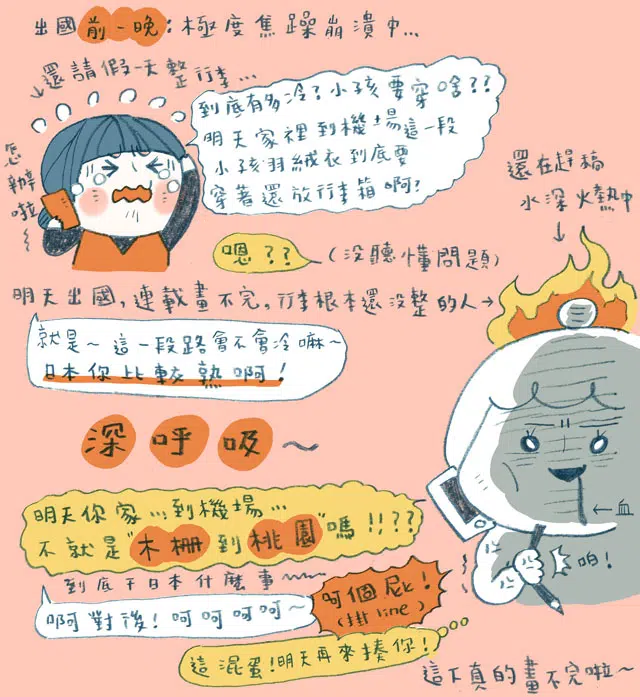 出國前一晚:極度焦躁崩潰中...
還請假一天整行李...
怎辦啦
到底有多冷?小孩要穿啥??
明天家裡到機場這一段
小孩羽絨衣到底要
穿著還放行李箱啊?
還在趕稿
水深火熱中
嗯??
(沒聽懂問題)
明天出國,連載畫不完,行李根本還沒整的人→
就是~這一段路會不會冷嘛~
日本你比較熟啊!
深呼吸~
明天你家...到機場...
不就是"木柵到桃園"嗎!!??
←血
到底干日本什麼事~~~
啊對後!呵呵呵呵~
呵個屁!
(掛line)
啪!
這混蛋!明天再來揍你!
這下真的畫不完啦~